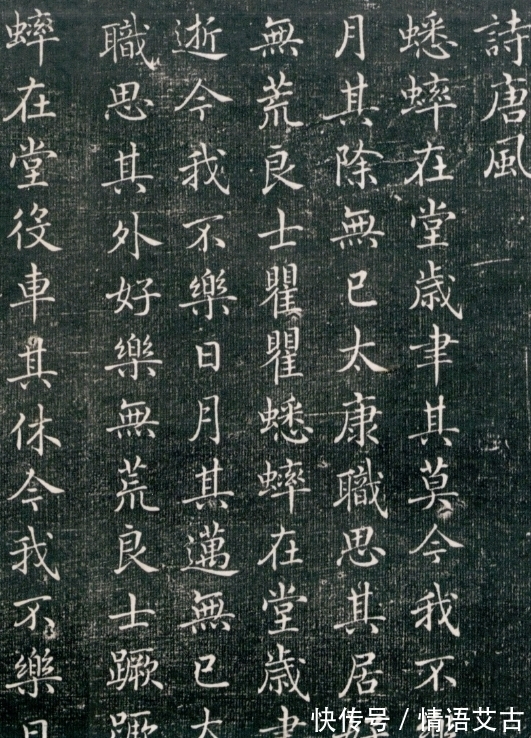 詩唐風
蟋蟀在堂歳聿其莫今我不
月其除無已太康職思其居
無荒良士瞿瞿蟋蟀在堂歳聿
逝今我不樂日月其邁無已
職思其外好樂無荒良士蹶蹶
蟀在堂役車其休今我不樂日
快传号 / 情语艾古